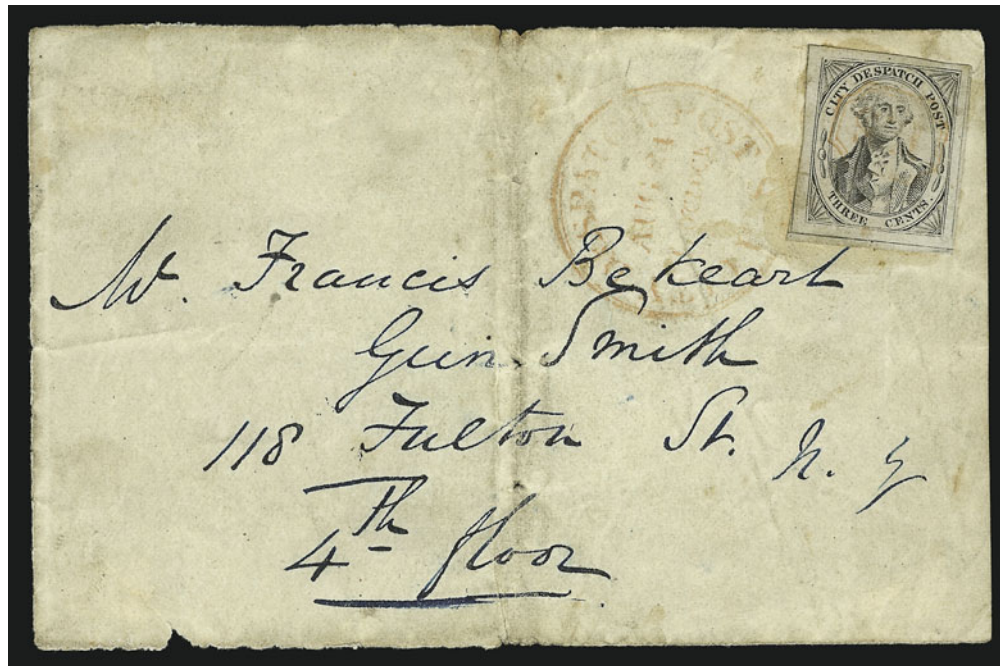 CITY DESPATCH POST
THREE CENTS.
POST
AUG
Mr. Francis Bekeart
Gun Smith
118 Fulton St. N. Y
4th floor